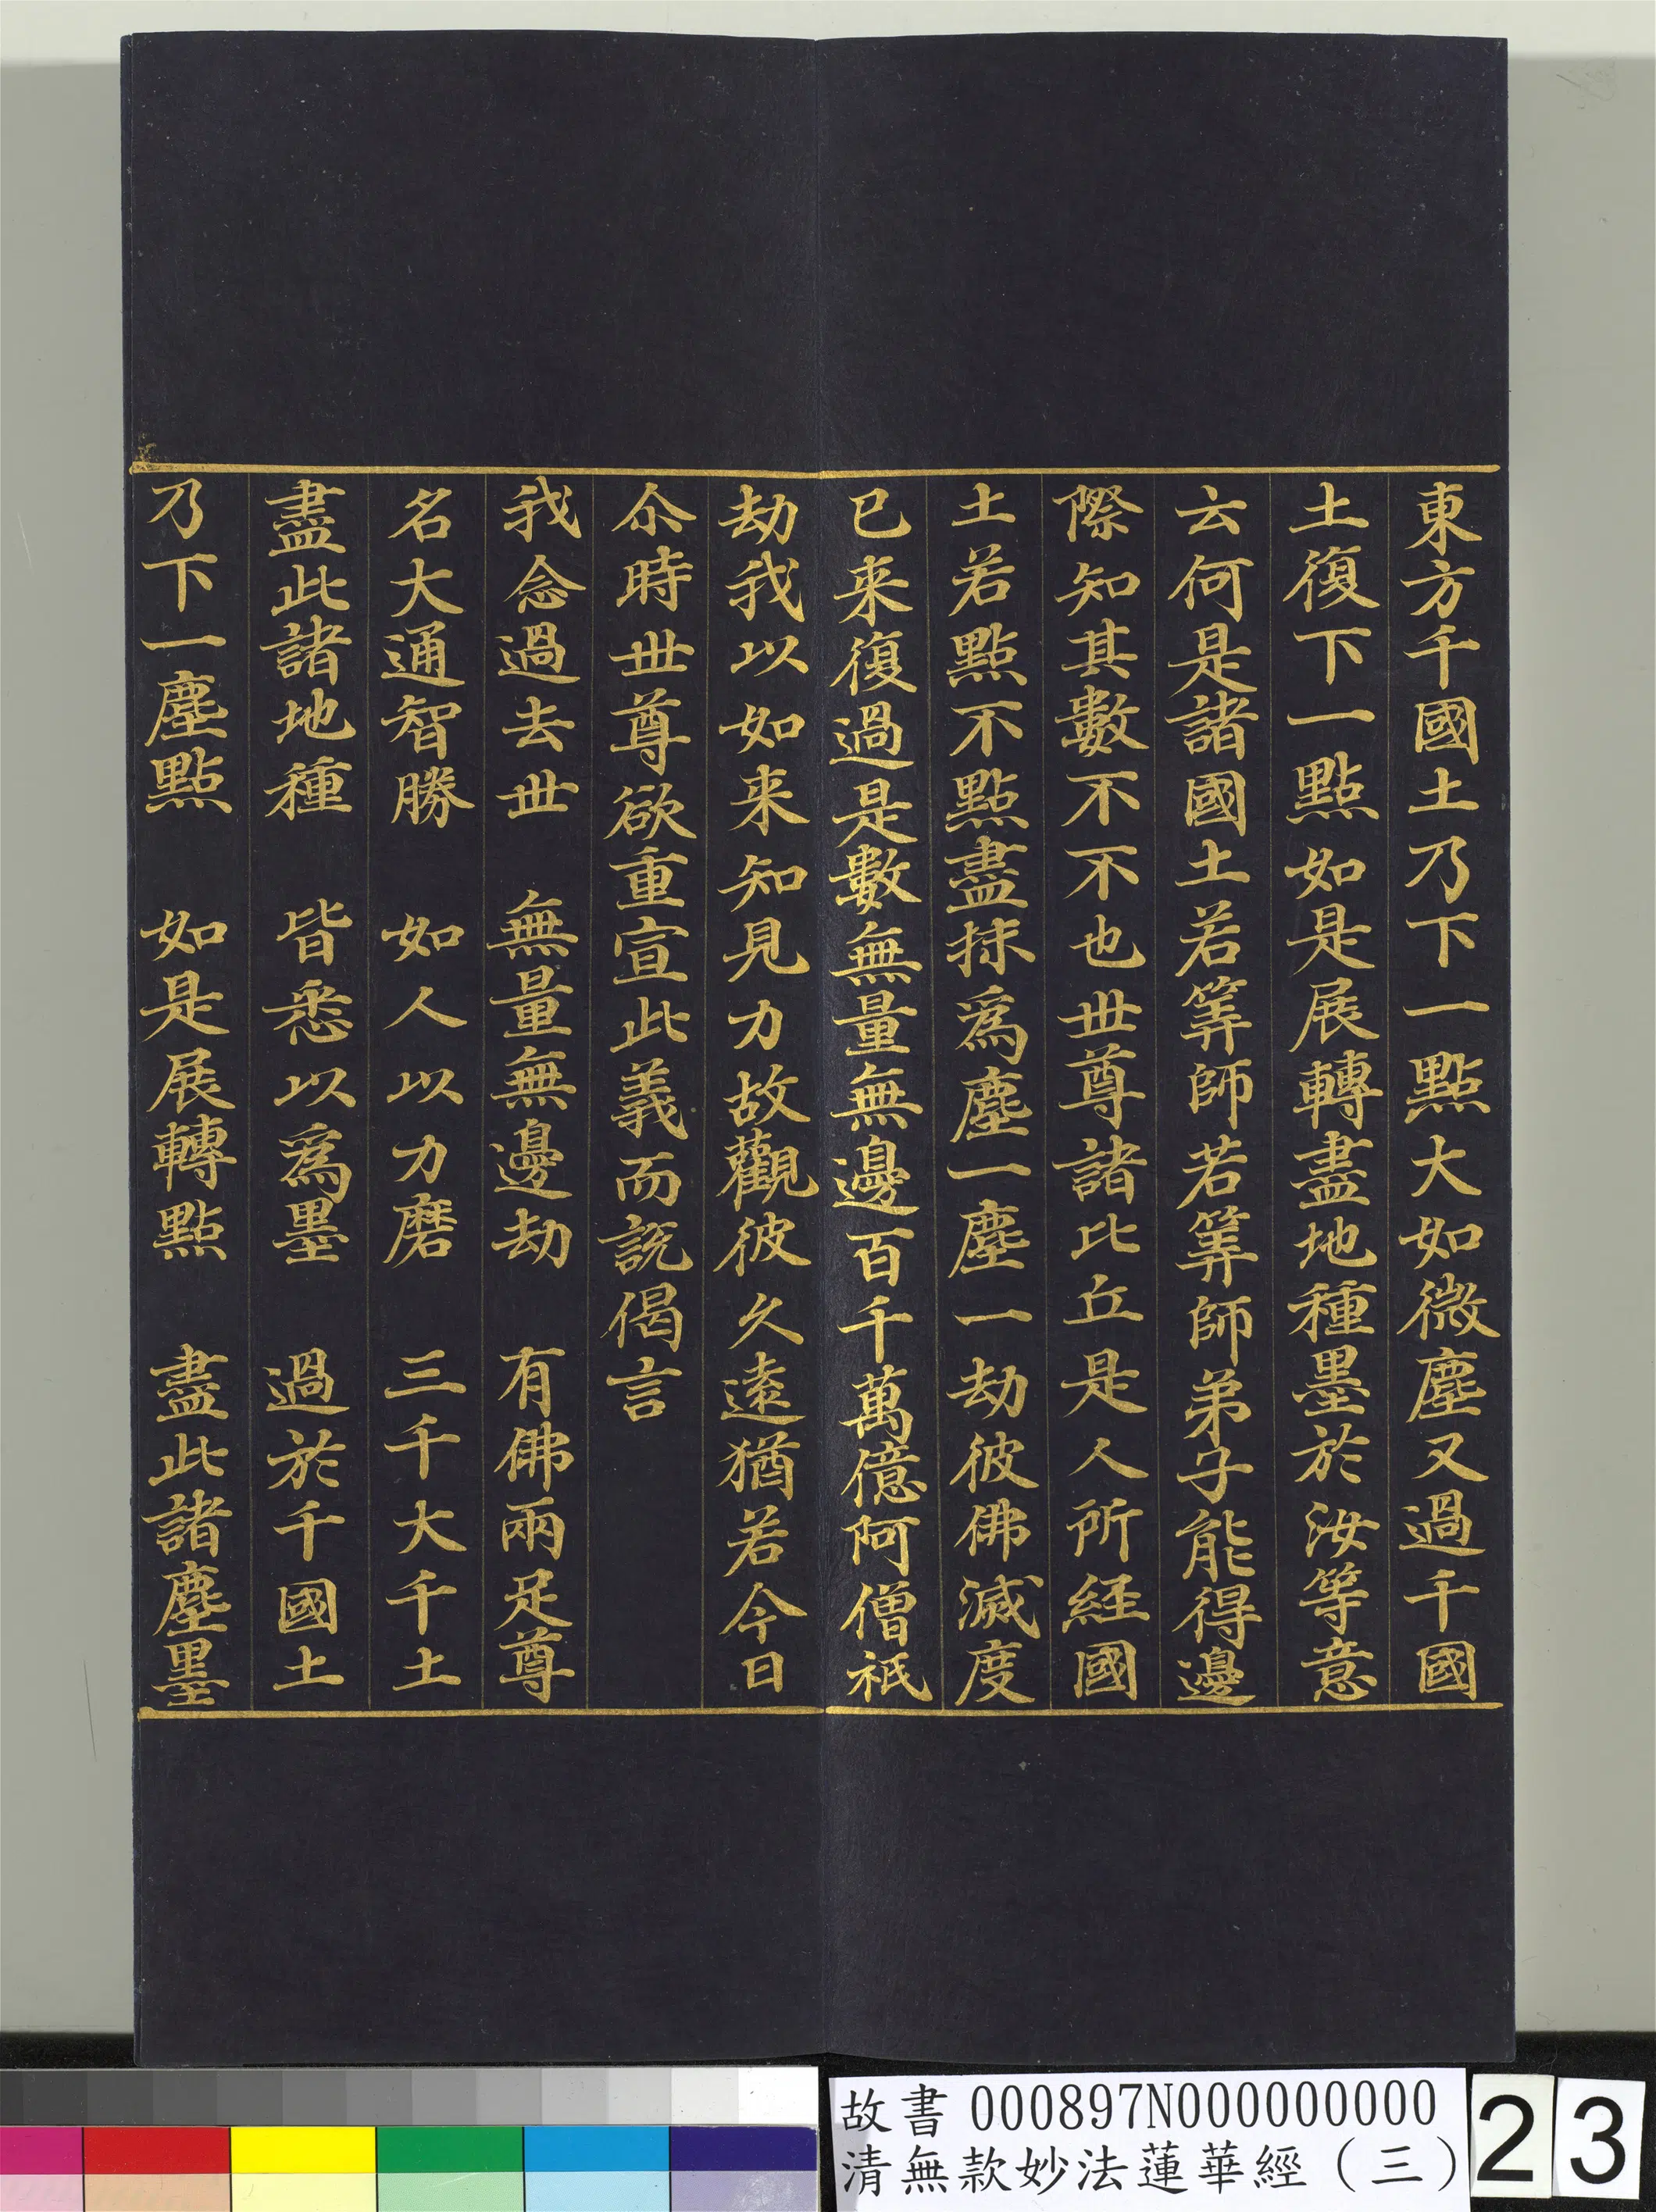 東方千國土乃下一點大如微塵又過千國
土復下一點如是展轉盡地種墨於汝等意
云何是諸國土若筭師若筭師弟子能得邊
際知其數不不也世尊諸比丘是人所經國
土若點不點盡抹為塵一塵一劫彼佛滅度
已来復過是數無量無邊百千萬億阿僧祇
劫我以如来知見力故觀彼久遠猶若今日
尒時世尊欲重宣此義而說偈言
我念過去世　無量無邊劫　有佛兩足尊
名大通智勝　如人以力磨　三千大千土
盡此諸地種　皆悉以為墨　過於千國土
乃下一塵點　如是展轉點　盡此諸塵墨
故書 000897N000000000
清無款妙法蓮華經（三）
23